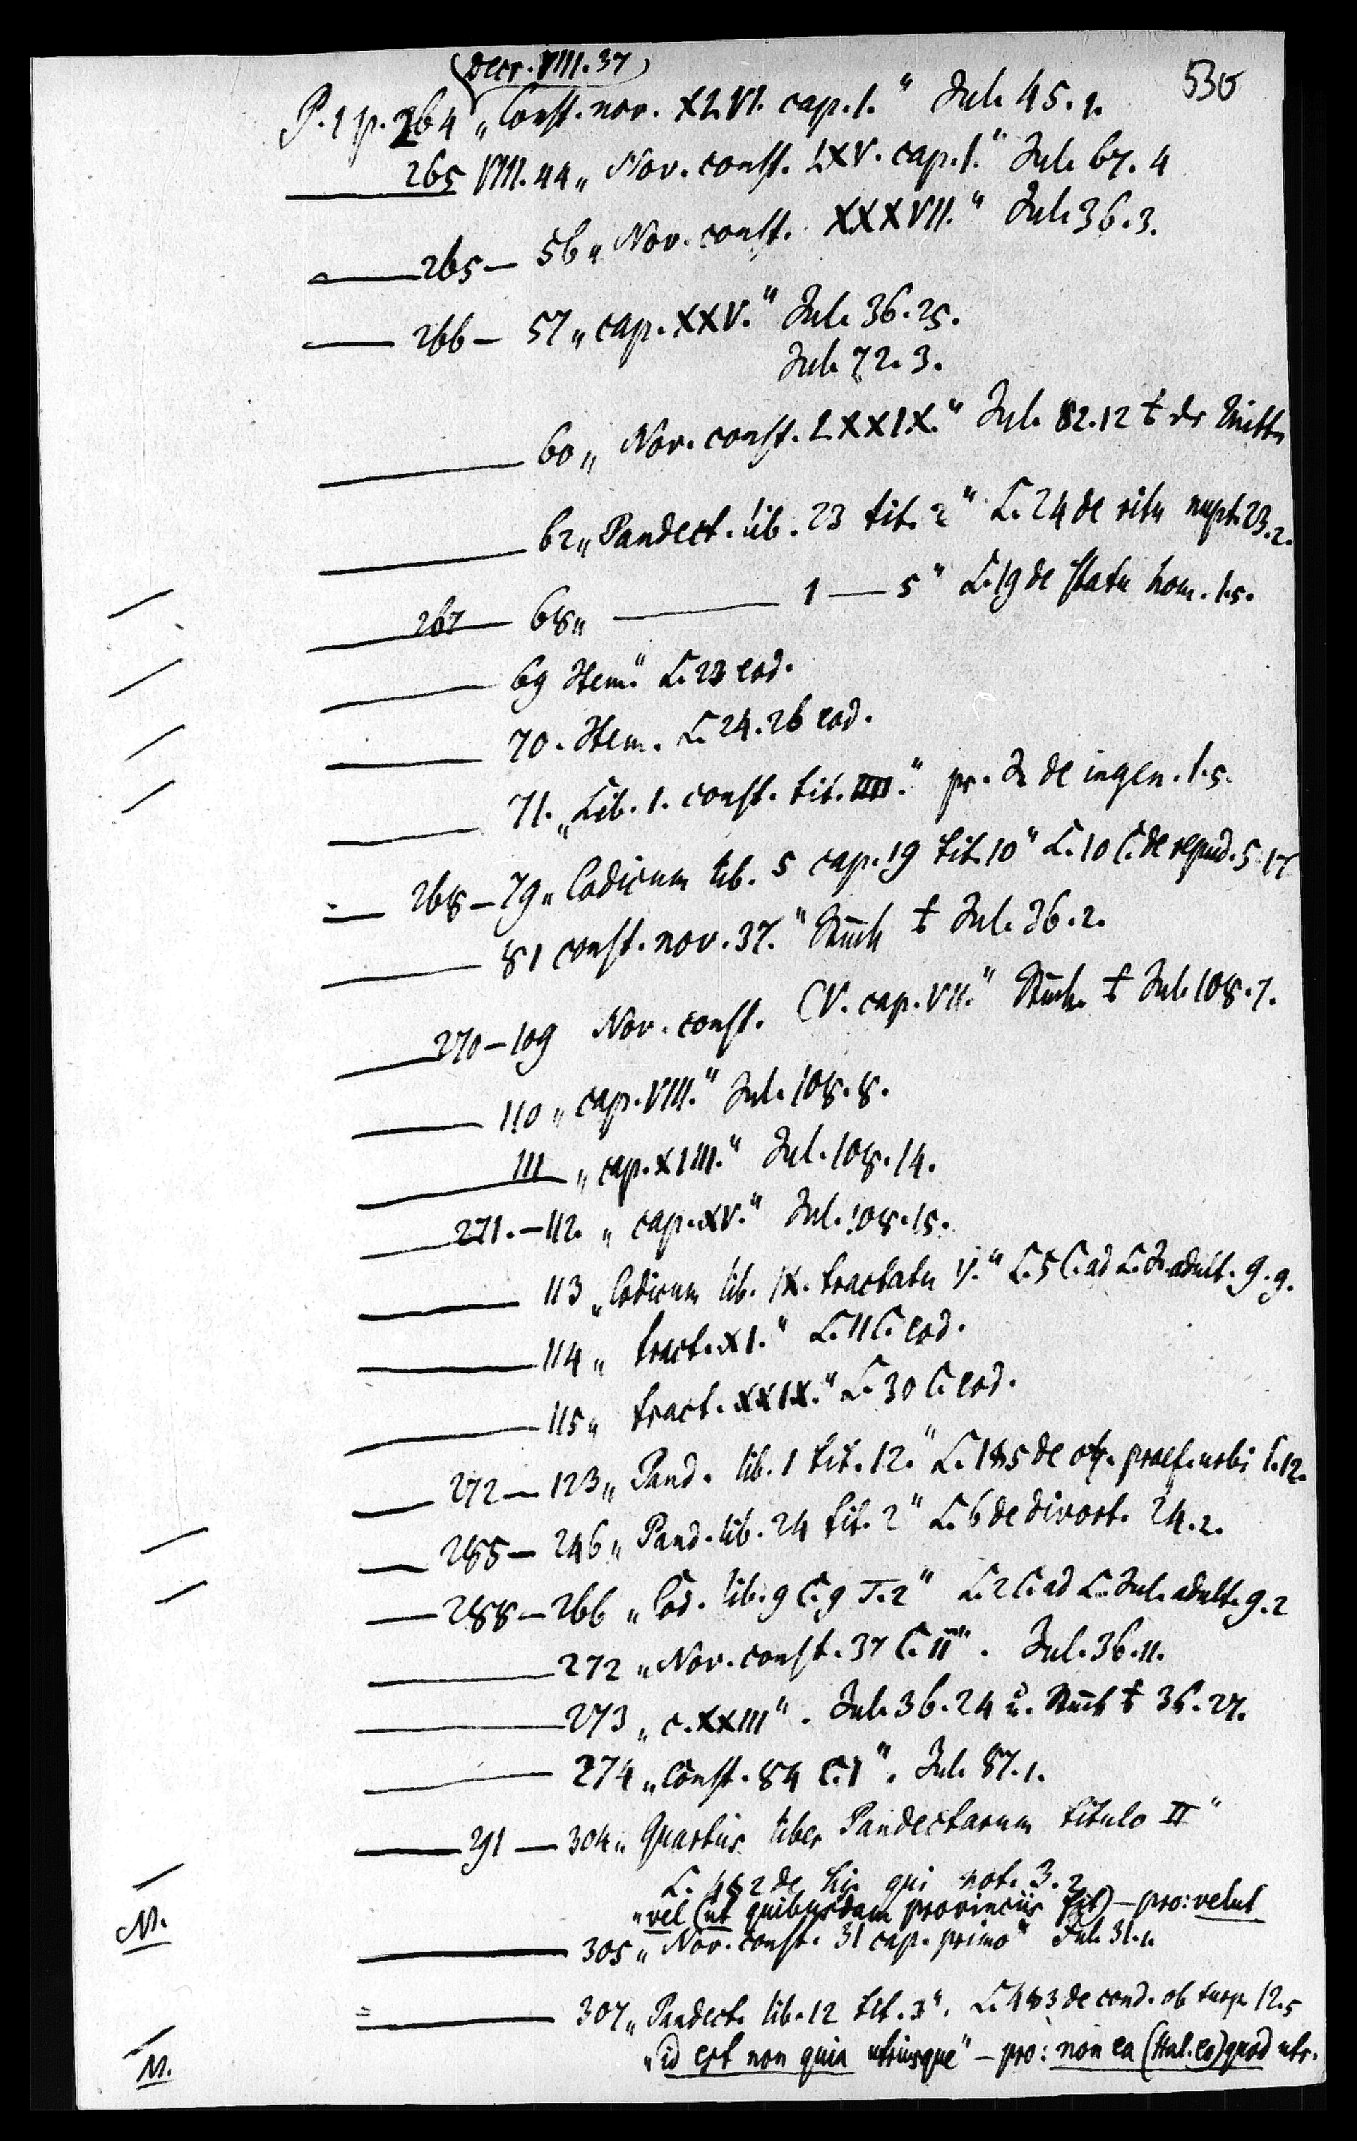 (Decr. VIII. 37)
530
P. 1 p. 264 „Const. nov. XLVI. cap. 1.“ Jul. 45. 1.
265 VIII. 44 „Nov. const. LXV. cap. 1.“ Jul. 67. 4
265 — 56 „Nov. const. XXXVII.“ Jul. 36. 3.
266 — 57 „cap. XXV.“ Jul. 36. 25.
Jul. 72. 3.
60 „Nov. const. LXXIX.“ Jul. 82. 12 † der Mitte
62 „Pandect. lib. 23 tit. 2“ L. 24 de ritu nupt. 23. 2.
267 68 „ — 1 — 5“ L. 19 de statu hom. 1. 5.
69 Item.“ L. 23 eod.
70. Item. L. 24. 26 eod.
71. „Lib. 1. const. tit. IIII.“ pr. J. de ingen. 1. 5.
268 — 79 „Codicum lib. 5 cap. 19 tit. 10“ L. 10 C. de repud. 5. 17
81 const. nov. 37.“ Stück † Jul. 36. 2.
270 — 109 Nov. const. CV. cap. VII.“ Stück † Jul. 108. 7.
110 „cap. VIII.“ Jul. 108. 8.
111 „cap. XIIII.“ Jul. 108. 14.
271. — 112. „cap. XV.“ Jul. 108. 15.
113 „Codicum lib. IX. tractatu V.“ L. 5 C. ad L. J. adult. 9. 9.
114 „tract. XI.“ L. 11 C. eod.
115 „tract. XXIX.“ L. 30 C. eod.
272 — 123 „Pand. lib. 1 tit. 12.“ L. 1 § 5 de off. praef. urbi 1. 12.
285 — 246 „Pand. lib. 24 tit. 2“ L. 6 de divort. 24. 2.
288 — 266 „Cod. lib. 9 C. 9 T. 2“ L. 2 C. ad L. Jul. adult. 9. 2
272 „Nov. const. 37 C. II“. Jul. 36. 11.
273 „c. XXIII“. Jul. 36. 24 u. Stück † 36. 27.
274 „Const. 84 C. 1“. Jul. 87. 1.
291 — 304 „Quartus liber Pandectarum titulo II“
L. 4 § 2 de his qui not. 3. 2
M. „vel (ut quibusdam provinciis fit) — pro: velut
305 „Nov. const. 31 cap. primo“ Jul. 31. 1.
307 „Pandect. lib. 12 tit. 3“. L. 4 § 3 de cond. ob turp. 12. 5
M. „id est non quia utriusque“ — pro: non ea (Hal. eo) quod utr.